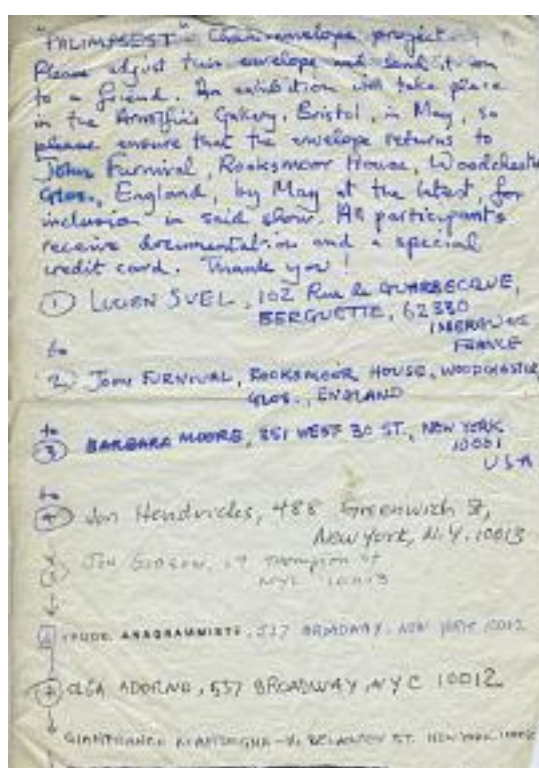 "PALIMPSEST" Chain-envelope project.
Please adjust this envelope and send it on
to a friend. An exhibition will take place
in the Arnolfini Gallery, Bristol, in May, so
please ensure that the envelope returns to
John Furnival, Rooksmoor House, Woodchester
Glos., England, by May at the latest, for
inclusion in said show. All participants
receive documentation and a special
credit card. Thank you!
① LUCIEN SUEL, 102 Rue de GUARBECQUE,
BERGUETTE, 62330
FRANCE
to
2 JOHN FURNIVAL, ROOKSMOOR HOUSE, WOODCHESTER,
GLOS., ENGLAND
to
③ BARBARA MOORE, 351 WEST 30 ST., NEW YORK
10001
USA
to
④ Jon Hendricks, 488 Greenwich St,
New York, N.Y. 10013
Thompson St
NYC 10013
ANAGRAMMISTE, 537 BROADWAY, NEW YORK 10012
OLGA ADORNO, 537 BROADWAY, NYC 10012
GIANFRANCO ST. NEW YORK